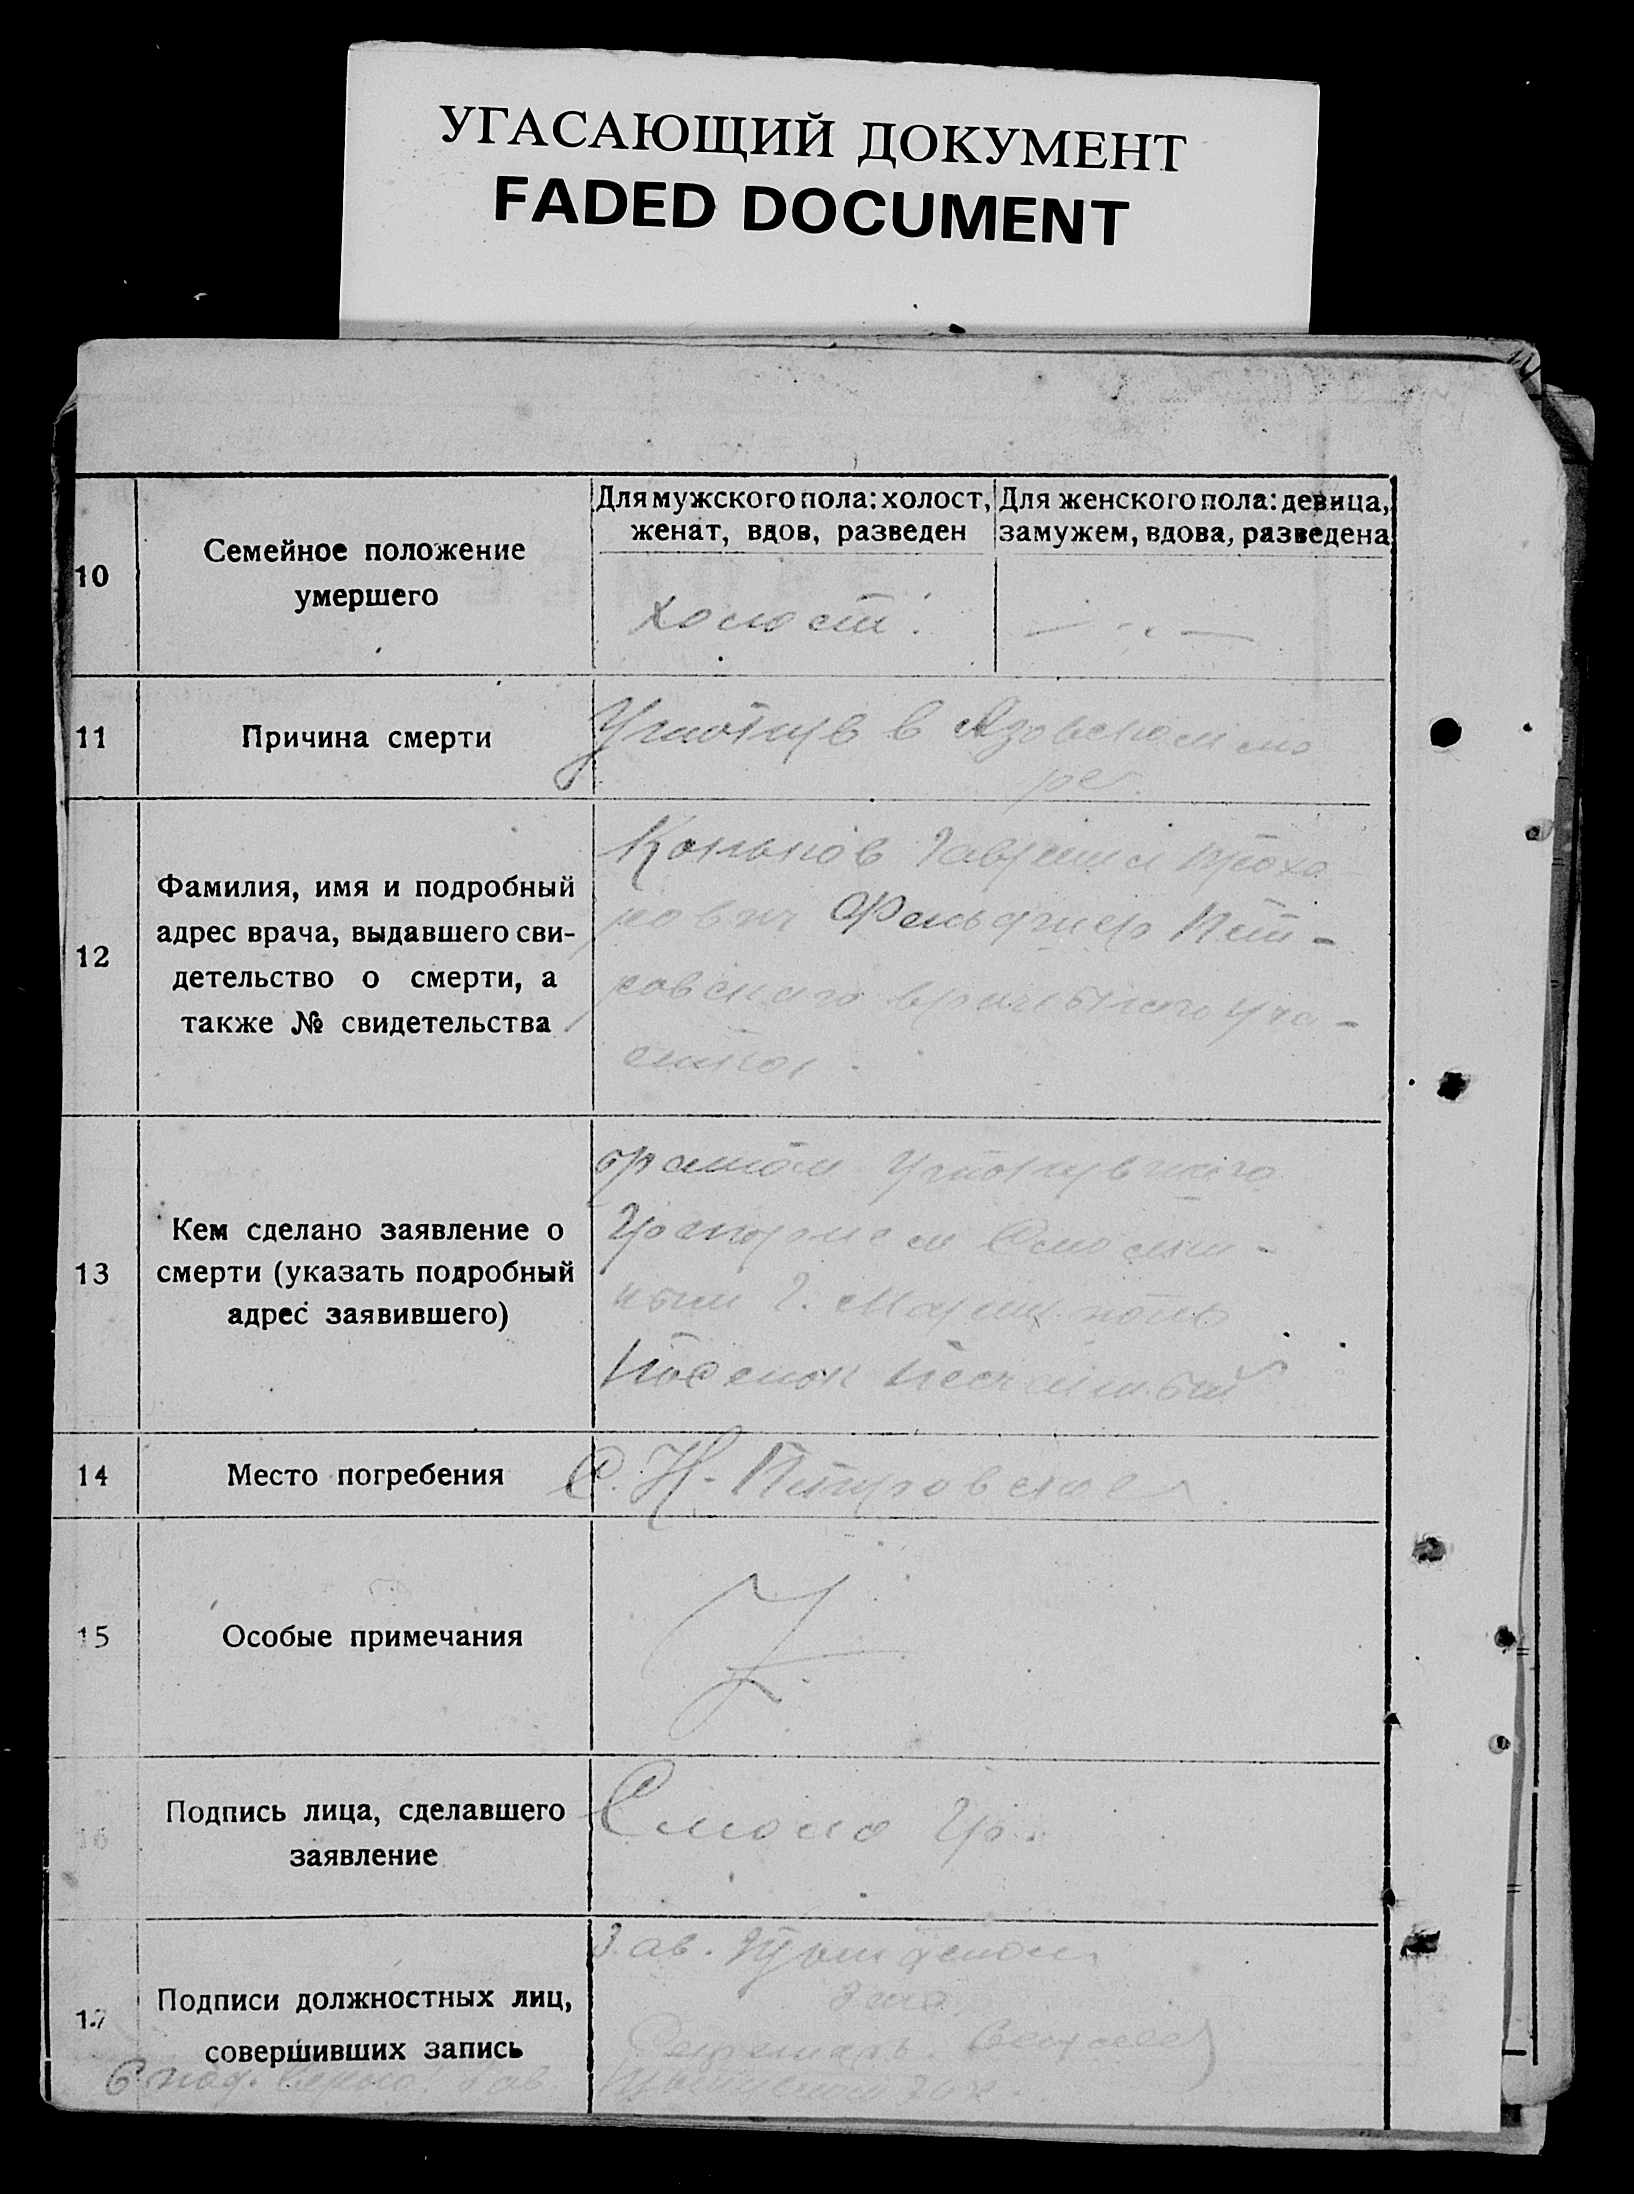 УГАСАЮЩИЙ ДОКУМЕНТ
FADED DOCUMENT
10
Семейное положение
умершего
Для мужского пола: холост,
женат, вдов, разведен
Для женского пола: девица,
замужем, вдова, разведена
холост.
11
Причина смерти
Утонув в Азовском мо
ре.
12
Фамилия, имя и подробный
адрес врача, выдавшего сви-
детельство о смерти, а
также № свидетельства
Коньков Гавриил Прохо
рович Фельдшер Пет-
ровского врачебного уча-
стка.
13
Кем сделано заявление о
смерти (указать подробный
адрес заявившего)
братом утонувшего
Григорием
г. Мариуполь
Поселок Песчаный
14
Место погребения
С. Н-Петровское
15
Особые примечания
Z
16
Подпись лица, сделавшего
заявление
Гр.
17
Подписи должностных лиц,
совершивших запись
Зав.
Секретарь
С под. верно. Зав